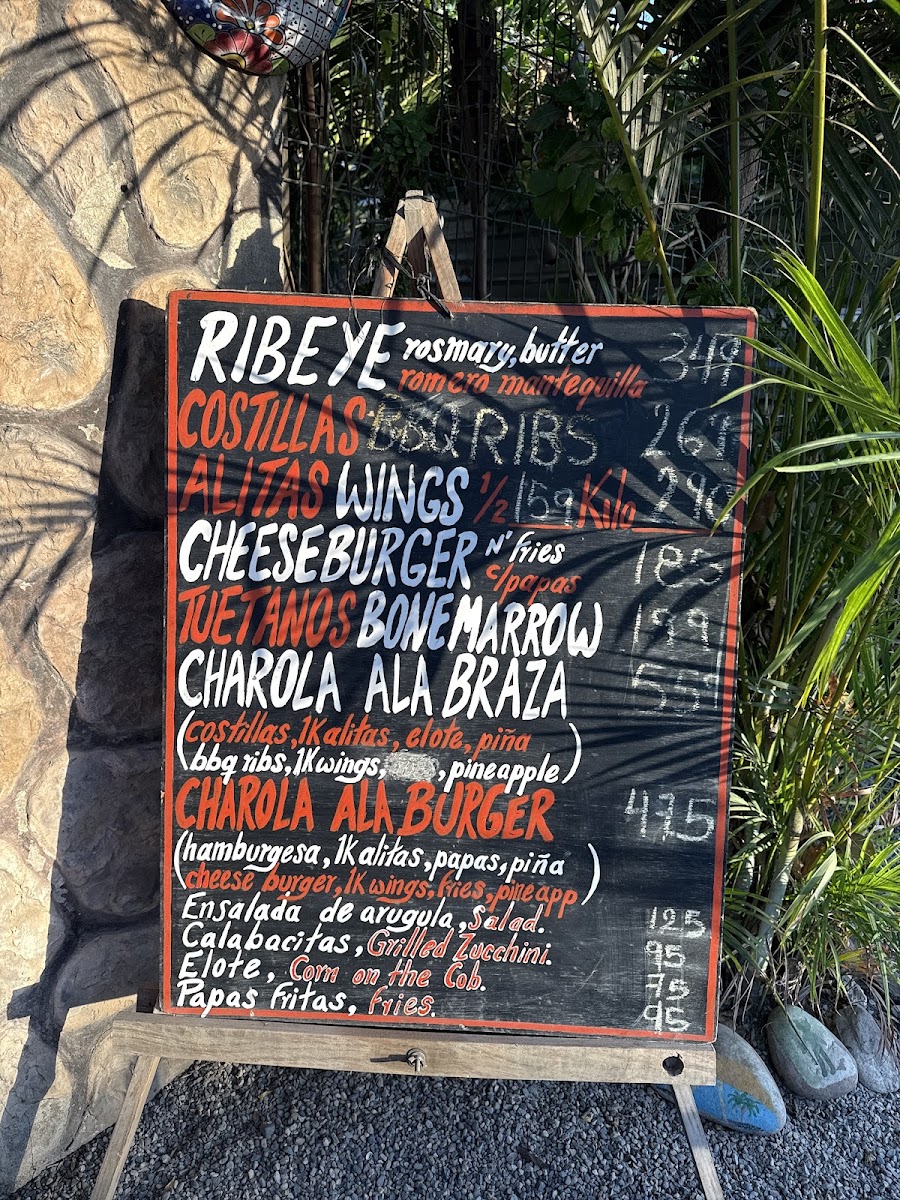 RIBEYE rosmary, butter 349
romero mantequilla
COSTILLAS BBQ RIBS
ALITAS WINGS 1/2 159 Kilo
CHEESEBURGER N' fries 185
c/papas
TUETANOS BONE MARROW 159
CHAROLA ALA BRAZA
(costillas, 1K alitas, elote, piña
bbq ribs, 1K wings, , pineapple)
CHAROLA ALA BURGER 475
(hamburgesa, 1K alitas, papas, piña
cheese burger, 1K wings, fries, pineapp)
Ensalada de arugula, Salad. 125
Calabacitas, Grilled Zucchini. 95
Elote, Corn on the Cob. 75
Papas fritas, fries. 95